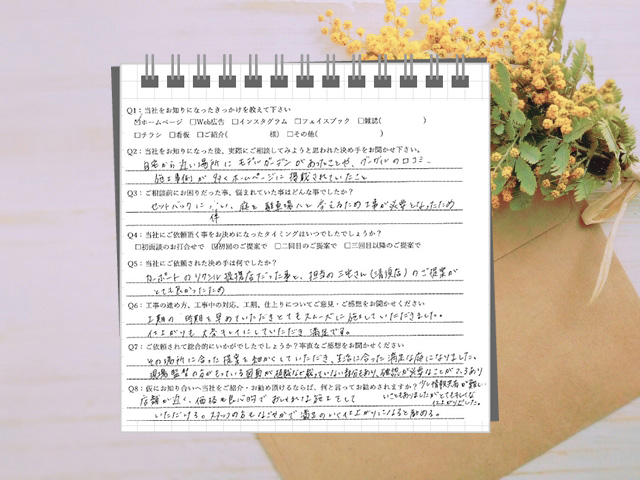 Q1：当社をお知りになったきっかけを教えて下さい
☑ホームページ □Web広告 □インスタグラム □フェイスブック □雑誌( )
□チラシ □看板 □ご紹介( 様) □その他( )
Q2：当社をお知りになった後、実際にご相談してみようと思われた決め手をお聞かせ下さい。
自宅から近い場所にモデルガーデンがあったことや、グーグルの口コミ、
施工事例が多くホームページに掲載されていたこと
Q3：ご相談前にお困りだった事、悩まれていた事はどんな事でしたか？
セットバックに伴い、庭を駐車場へと変えるため工事が必要となったため
Q4：当社にご依頼頂く事をお決めになったタイミングはいつでしたでしょうか？
□初面談のお打合せで ☑初回のご提案で □二回目のご提案で □三回目以降のご提案で
Q5：当社にご依頼された決め手は何でしたか？
カーポートのリクシル提携店だった事と、担当の三宅さん(清須店)のご提案が
とても良かったため
Q6：工事の進め方、工事中の対応、工期、仕上りについてご意見・ご感想をお聞かせください
工期の時期を早めていただきとてもスムーズに施工していただきました。
仕上がりも大変キレイにしていただき満足です。
Q7：ご依頼されて総合的にいかがでしたでしょうか？率直なご感想をお聞かせください
その場所に合った提案を細かくしていただき、生活に合った満足な庭になりました。
現場監督の方がもっている図面が 部分もあり、確認が必要なことが
Q8：仮にお知り合いへ当社をご紹介・お勧め頂けるならば、何と言ってお勧めされますか？
少し情報共有が難し
いこともありましたがとてもキレイな
仕上がりでした。
店舗が近く、価格も良心的でおしゃれな施工をして
いただける。スタッフの方もなごやかで満足のいく仕上がりになると勧める。